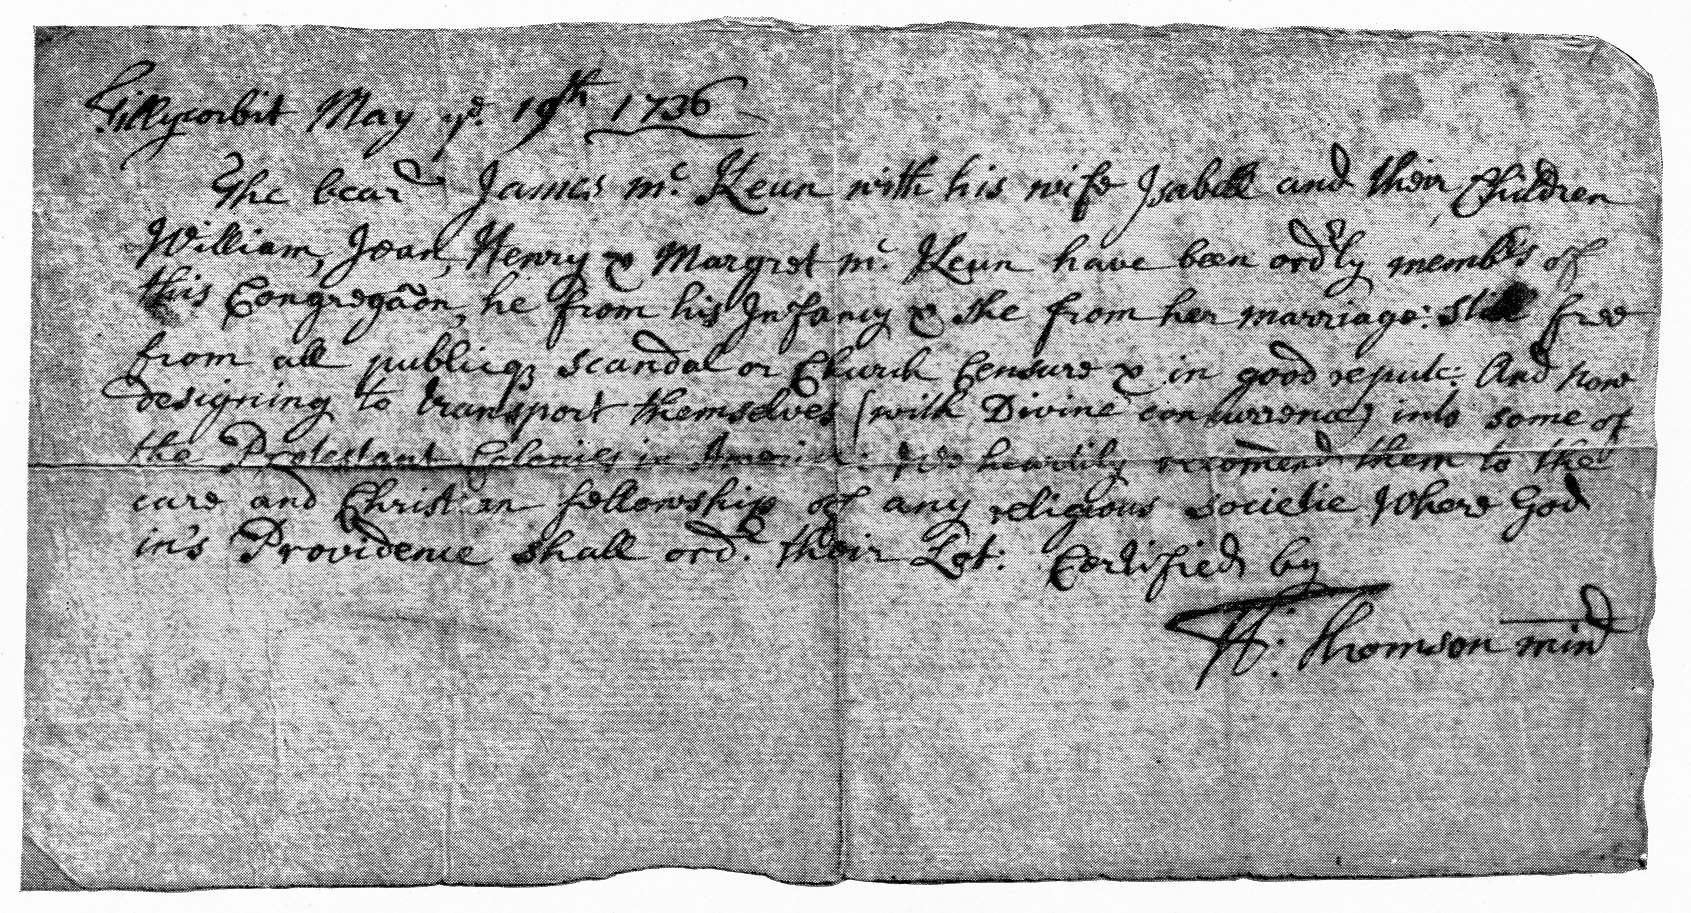 Gillygorbit May ye. 19th 1736
The bearr James mc. Keun with his wife Isabell and their Children
William, Jean, Henry & Margret mc. Keun have been ordrly membrs of
this Congregãon, he from his Infancy & she from her marriage: still free
from all publicq scandal or Church Censure & in good repute: And now
designing to transport themselves (with Divine concurrence) into some of
the Protestant Colonies in America: heartily recomend them to the
care and Christian fellowship of any religious societie Where God
in's Providence shall ord. their Lot: Certified by
Thomson mind